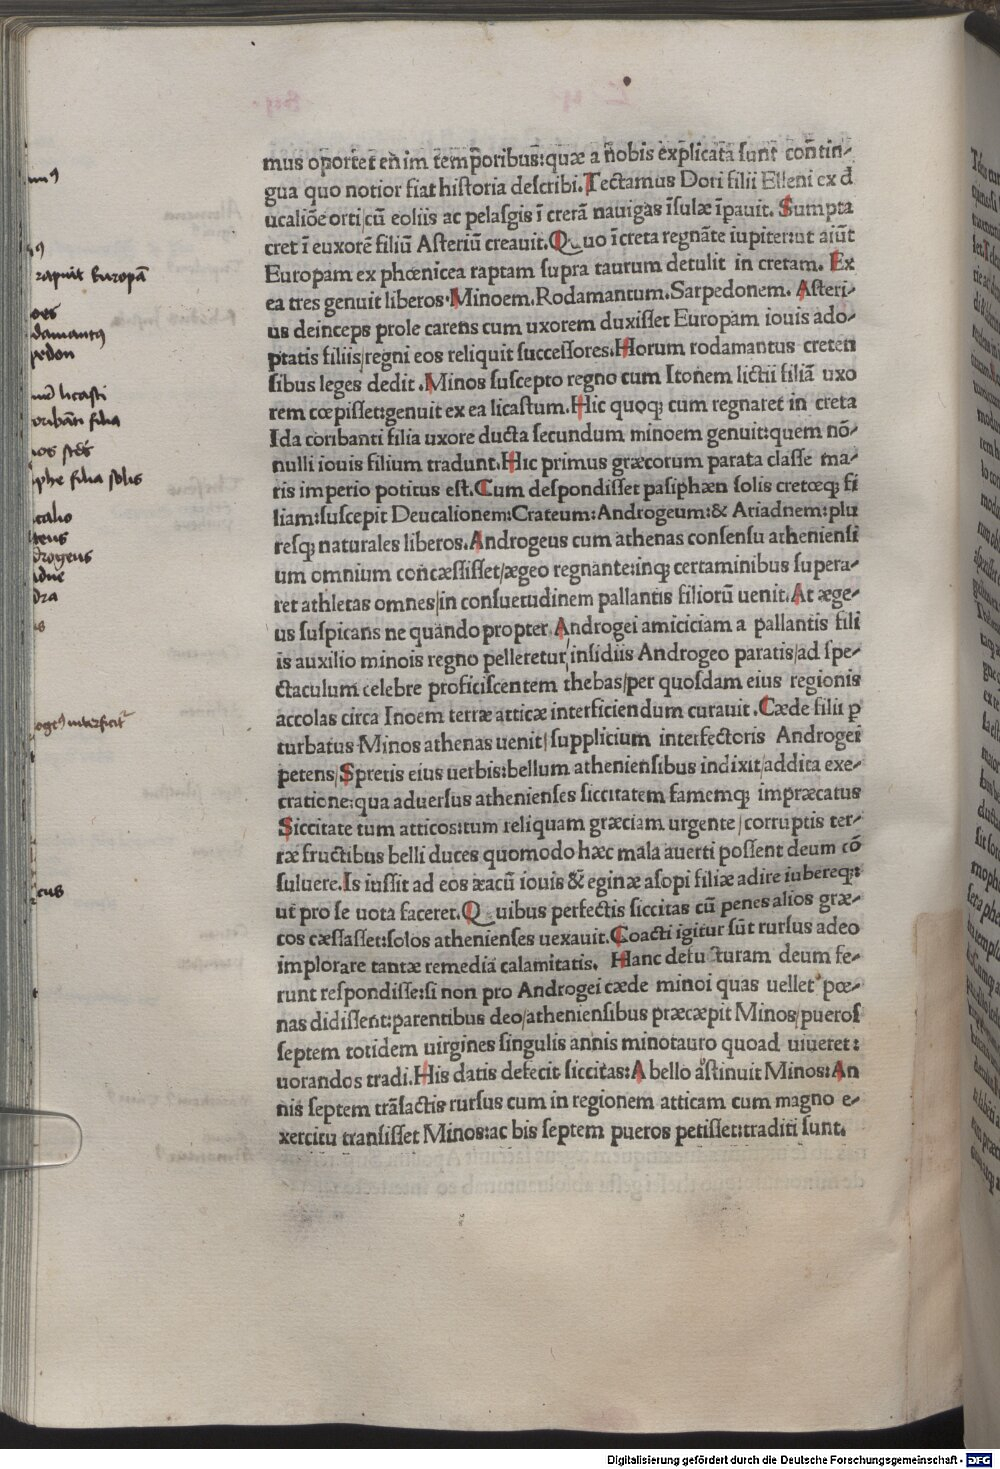 mus oportet enim temporibus:quæ a nobis explicata sunt contin-
gua quo notior fiat historia describi.Tectamus Dori filii Elleni ex d
ucaliōe orti/cū eoliis ac pelasgis ī cretā nauigās īsulæ īpauit. Sumpta
cret ī euxorē filiū Asteriū creauit.Quo ī creta regnāte iupiter:ut aiūt
Europam ex phœnicea raptam supra taurum detulit in cretam. Ex
ea tres genuit liberos.Minoem.Rodamantum.Sarpedonem. Asteri-
us deinceps prole carens cum uxorem duxisset Europam iouis ado-
ptatis filiis/regni eos reliquit successores.Horum rodamantus creten
sibus leges dedit .Minos suscepto regno cum Itonem lictii filiā uxo
rem cœpisset:genuit ex ea licastum.Hic quoq; cum regnaret in creta
Ida coribanti filia uxore ducta secundum minoem genuit:quem nō-
nulli iouis filium tradunt.Hic primus græcorum parata classe ma-
ris imperio potitus est.Cum despondisset pasiphæn solis cretœq; fi
liam:suscepit Deucalionem:Crateum:Androgeum:& Ariadnem:plu
resq; naturales liberos.Androgeus cum athenas consensu atheniensi
um omnium concæssisset/ægeo regnante:inq; certaminibus supera-
ret athletas omnes/in consuetudinem pallantis filiorū uenit.At æge-
us suspicans ne quando propter Androgei amiciciam a pallantis fili
is auxilio minois regno pelleretur/insidiis Androgeo paratis/ad spe-
ctaculum celebre proficiscentem thebas/per quosdam eius regionis
accolas circa Inoem terræ atticæ interficiendum curauit .Cæde filii ꝑ
turbatus Minos athenas uenit/supplicium interfectoris Androgei
petens/Spretis eius uerbis:bellum atheniensibus indixit/addita exe-
cratione:qua aduersus athenienses siccitatem famemq; impræcatus
Siccitate tum atticos:tum reliquam græciam urgente/corruptis ter-
ræ fructibus belli duces quomodo hæc mala auerti possent deum cō
suluere.Is iussit ad eos æacū iouis & eginæ asopi filiæ adire iubereq;:
ut pro se uota faceret.Quibus perfectis siccitas cū penes alios græ-
cos cæssasset:solos athenienses uexauit.Coacti igitur sūt rursus adeo
implorare tantæ remedia calamitatis. Hanc delu cturam deum fe-
runt respondisse:si non pro Androgei cæde minoi quas uellet pœ-
nas didissent:parentibus deo/atheniensibus præcæpit Minos/pueros
septem totidem uirgines singulis annis minotauro quoad uiueret:
uorandos tradi.His datis defecit siccitas:A bello abstinuit Minos:An
nis septem trāsactis rursus cum in regionem atticam cum magno e-
xercitu transisset Minos:ac bis septem pueros petisset:traditi sunt.
rapuit Europā
licasti
oribāti filia
phe filia solis
Digitalisierung gefördert durch die Deutsche Forschungsgemeinschaft - DFG